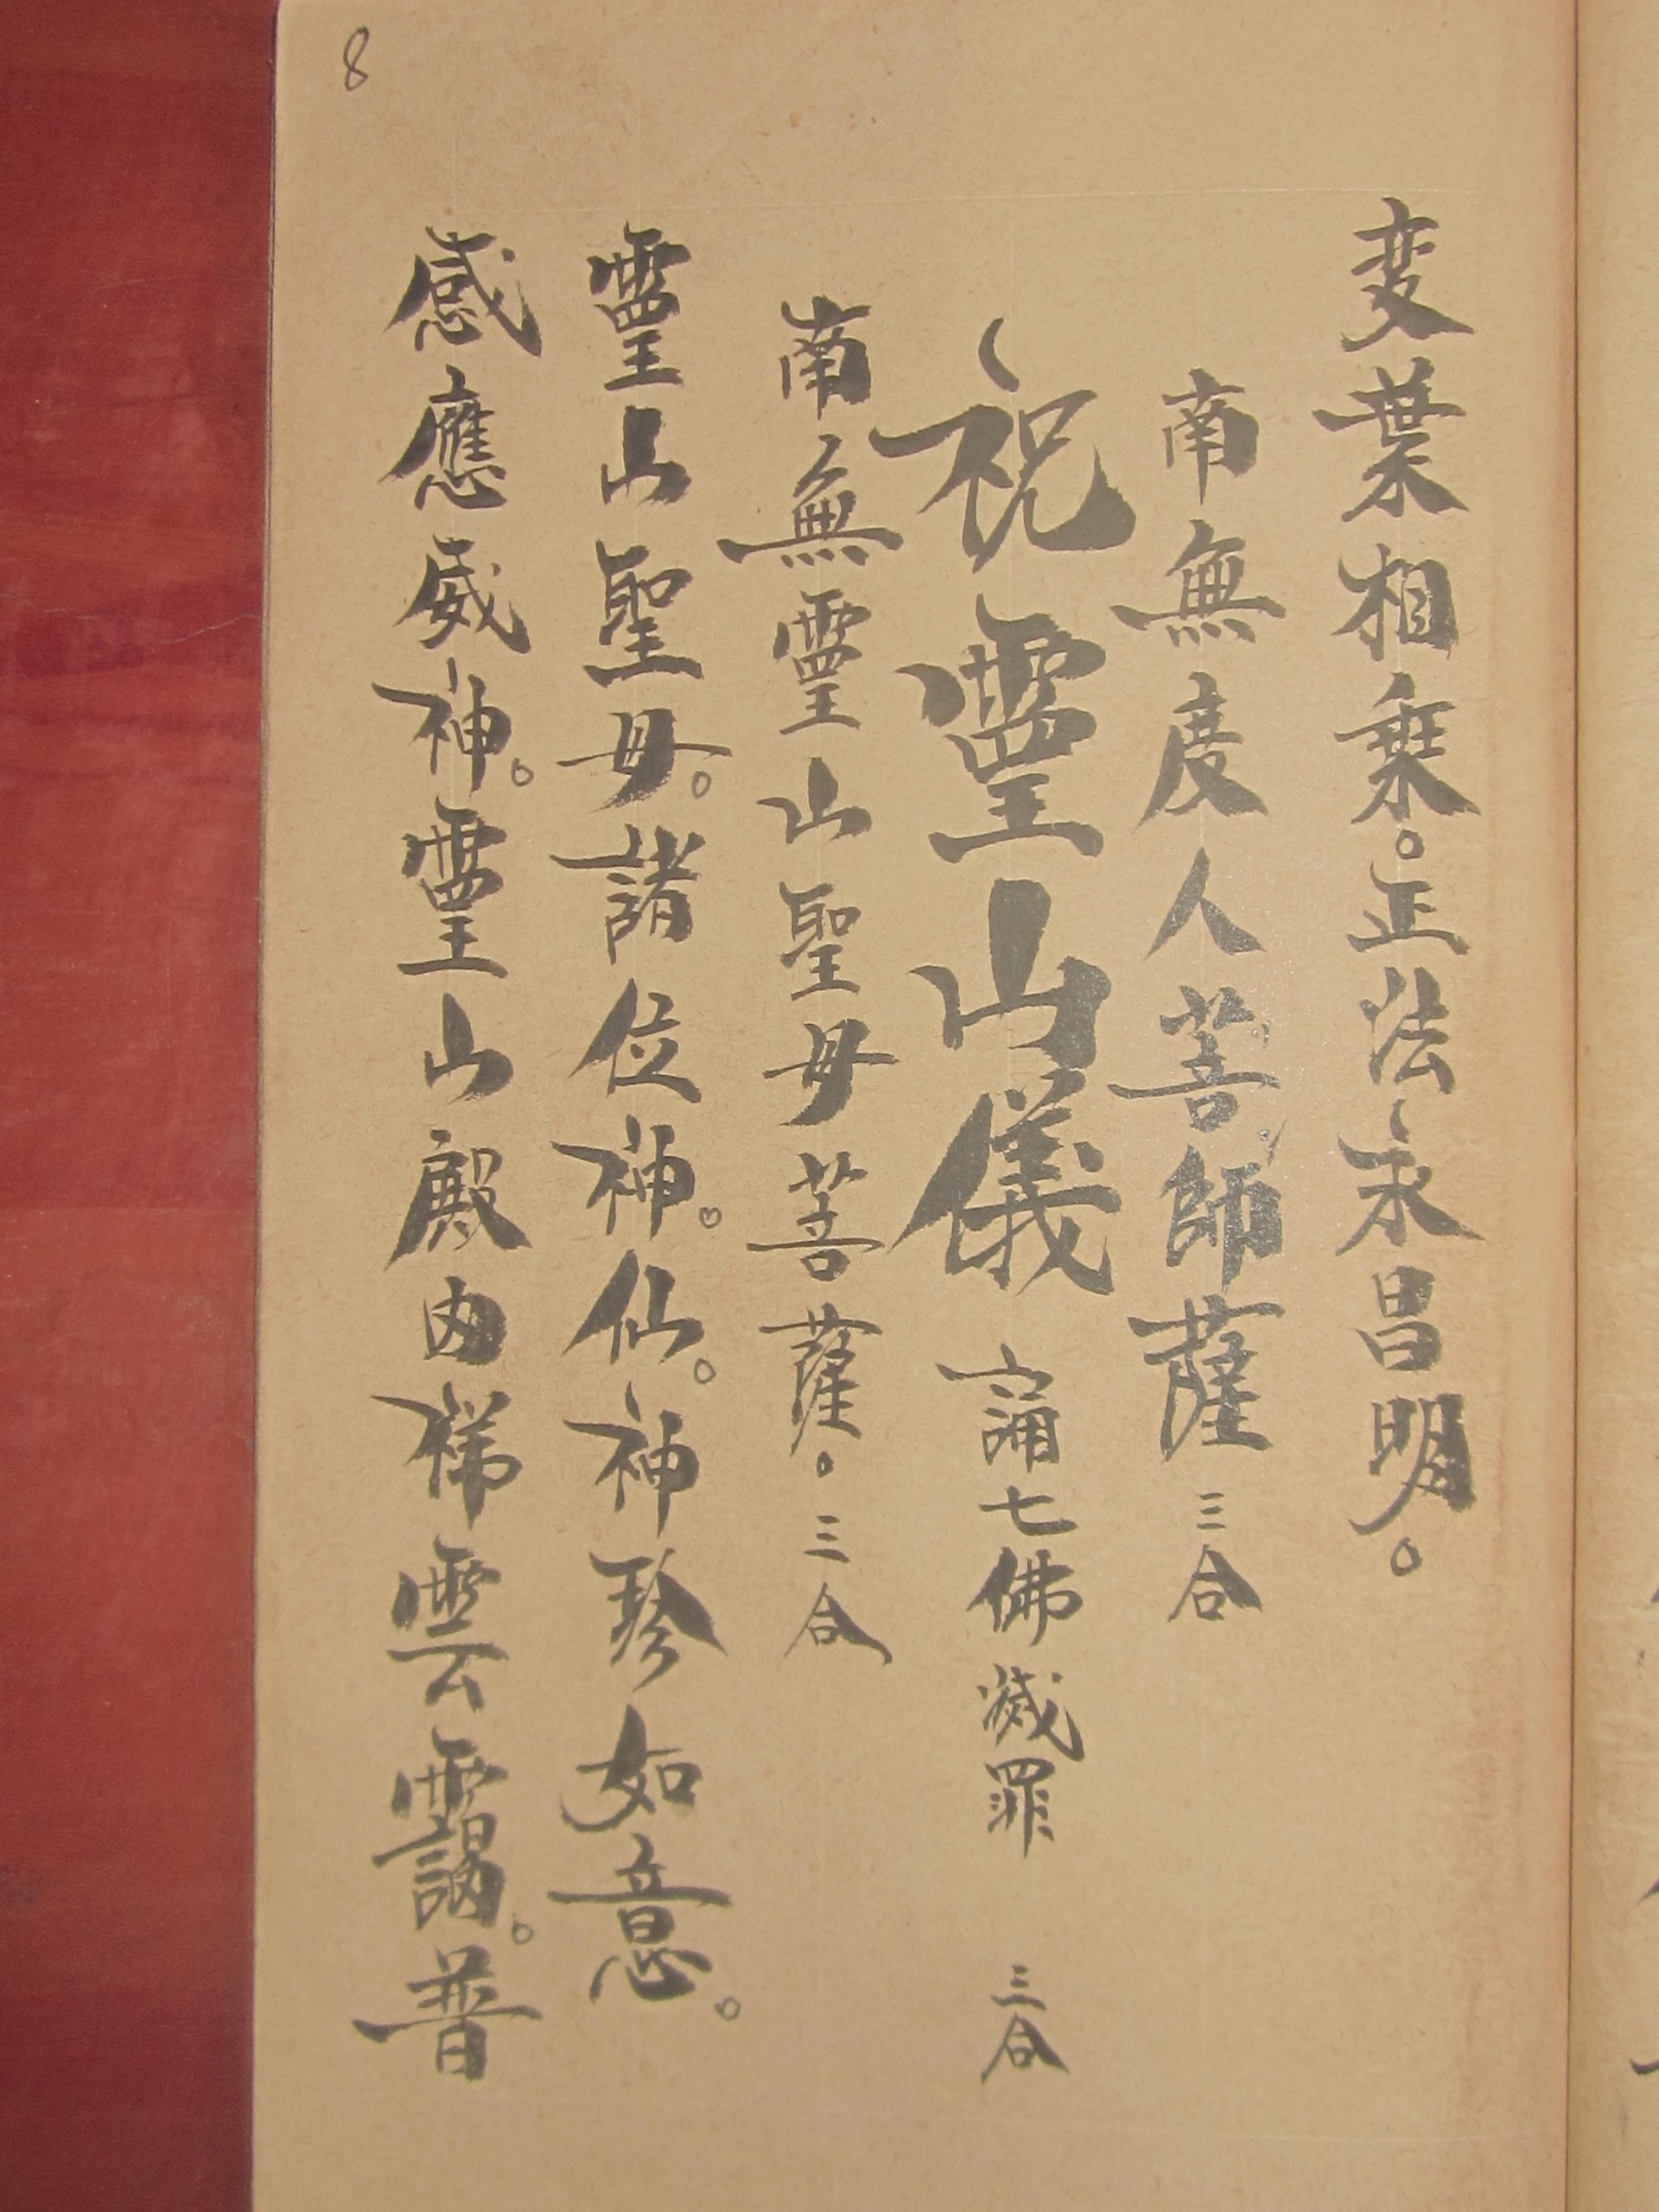 8
变葉相乗。正法永昌明。
南無度人菩師薩 三合
祝靈山儀 誦七佛滅罪 三合
南無靈山聖母菩薩。三合
靈山聖母。諸位神。仙。神珍如意。
感應威神。靈山殿内梯雲靄。普